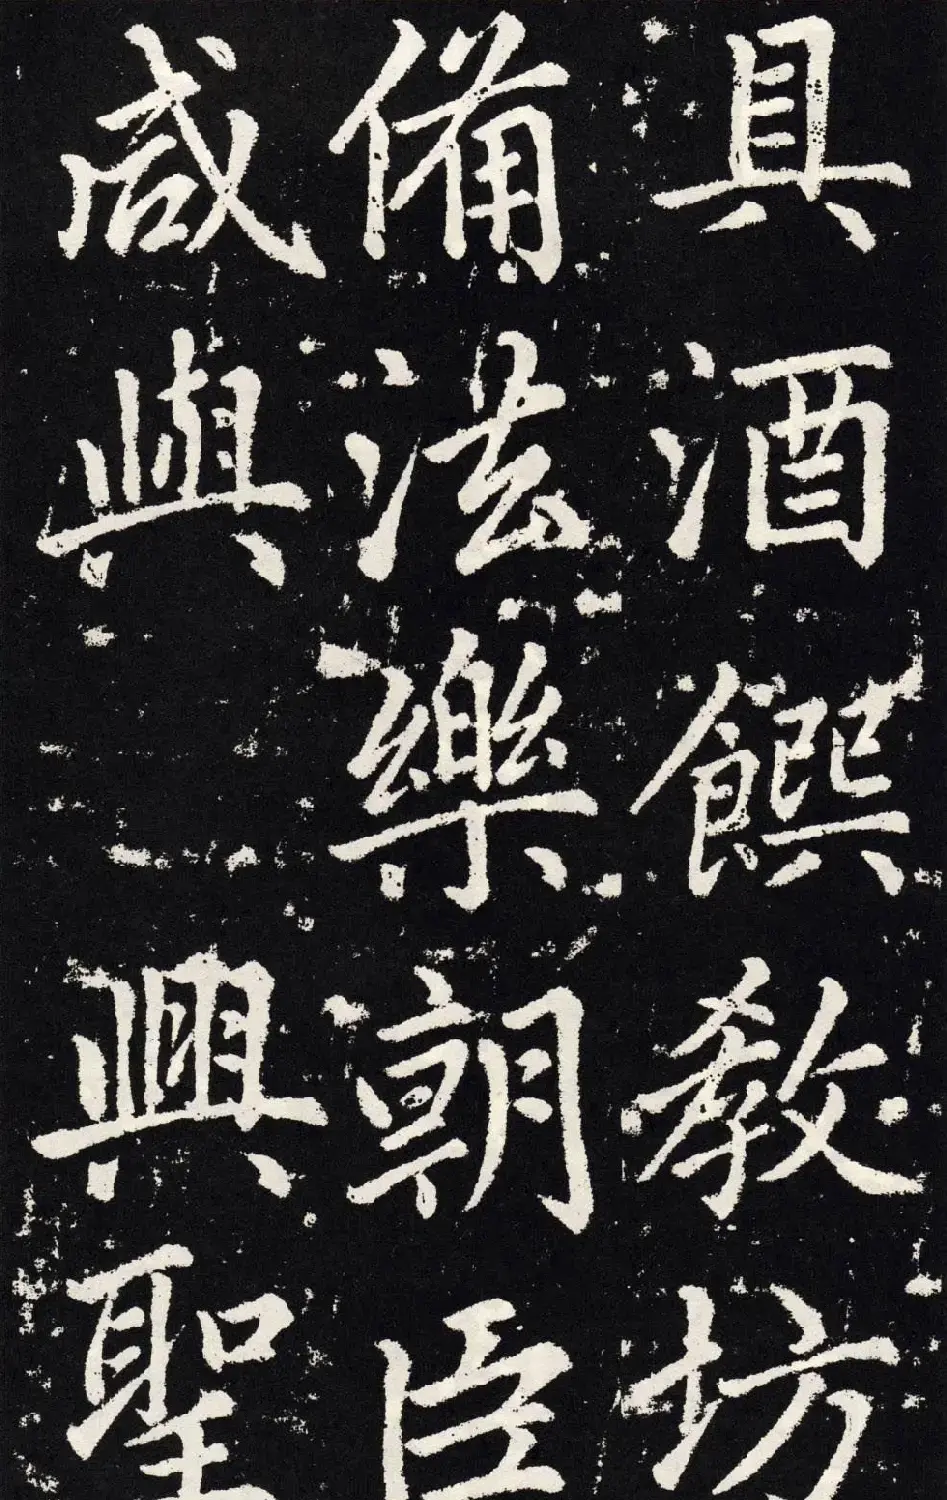 具酒饌教坊
備法樂朝臣
咸與興聖